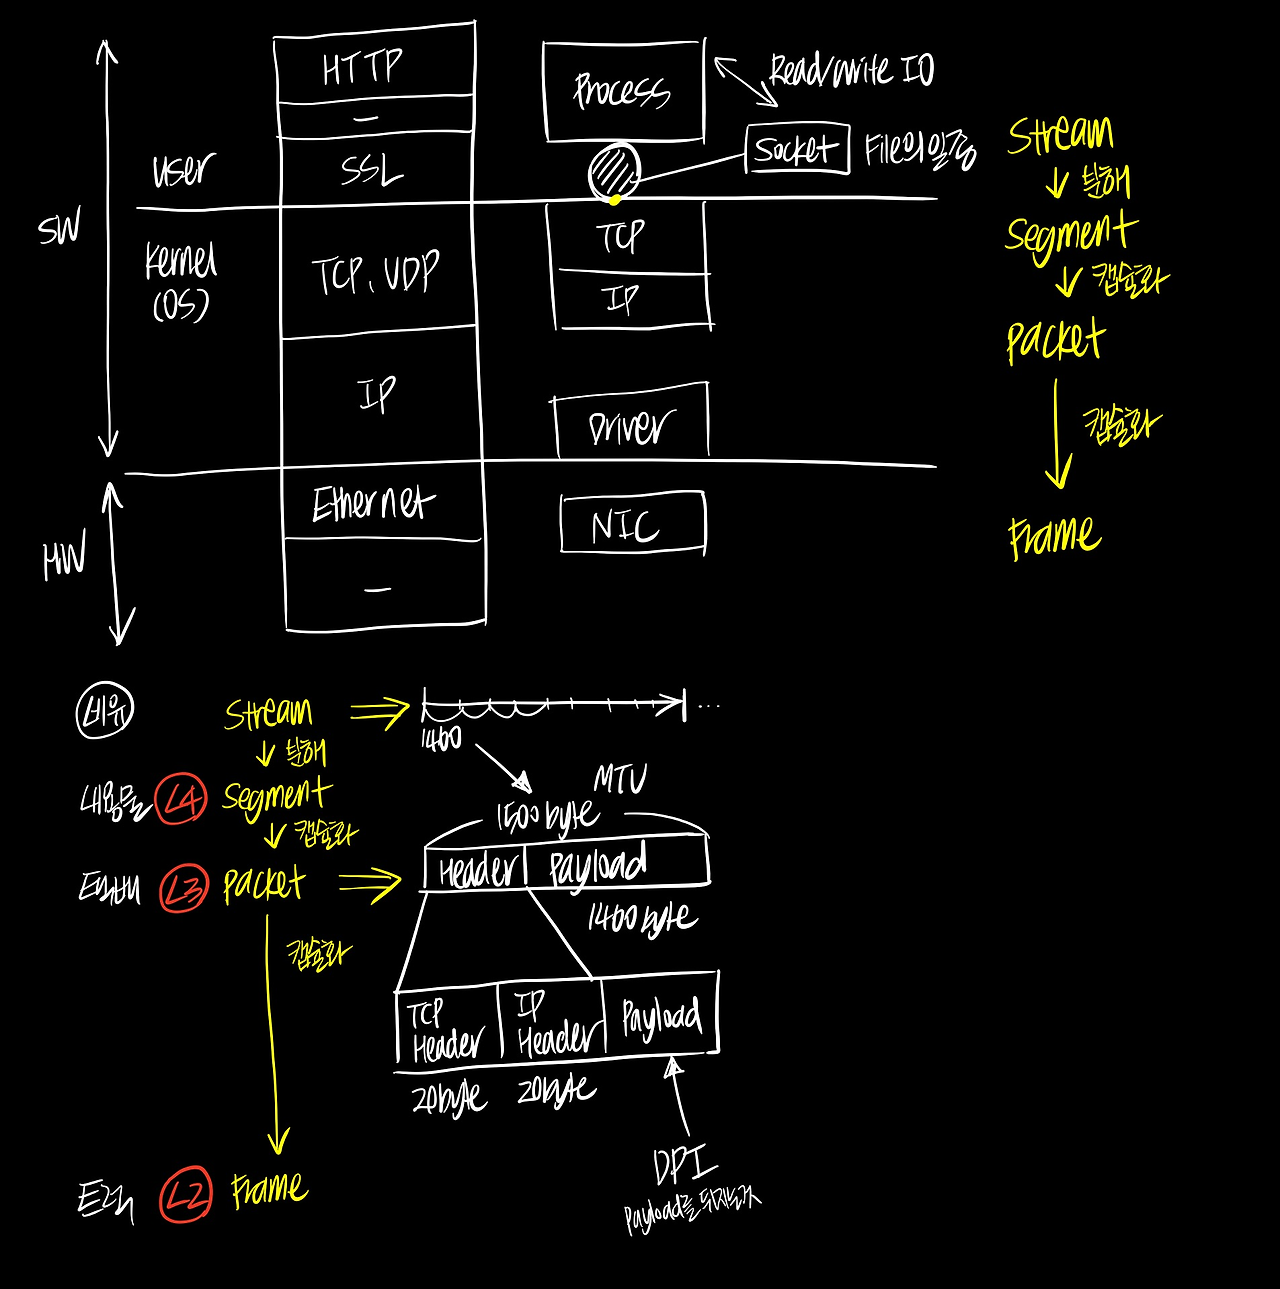 HTTP
Process
Read/write IO
-
Socket
File의 일종
Stream
분해
user
SSL
SW
Kernel
(OS)
TCP, UDP
TCP
Segment
캡슐화
IP
Packet
IP
Driver
캡슐화
Ethernet
NIC
Frame
HW
-
비유
Stream
...
1460
분해
내용물
L4
Segment
MTU
1500 byte
캡슐화
택배
L3
Packet
Header
Payload
1460 byte
캡슐화
TCP
Header
IP
Header
Payload
20 byte
20 byte
DPI
Payload를 뒤지는거
트럭
L2
Frame